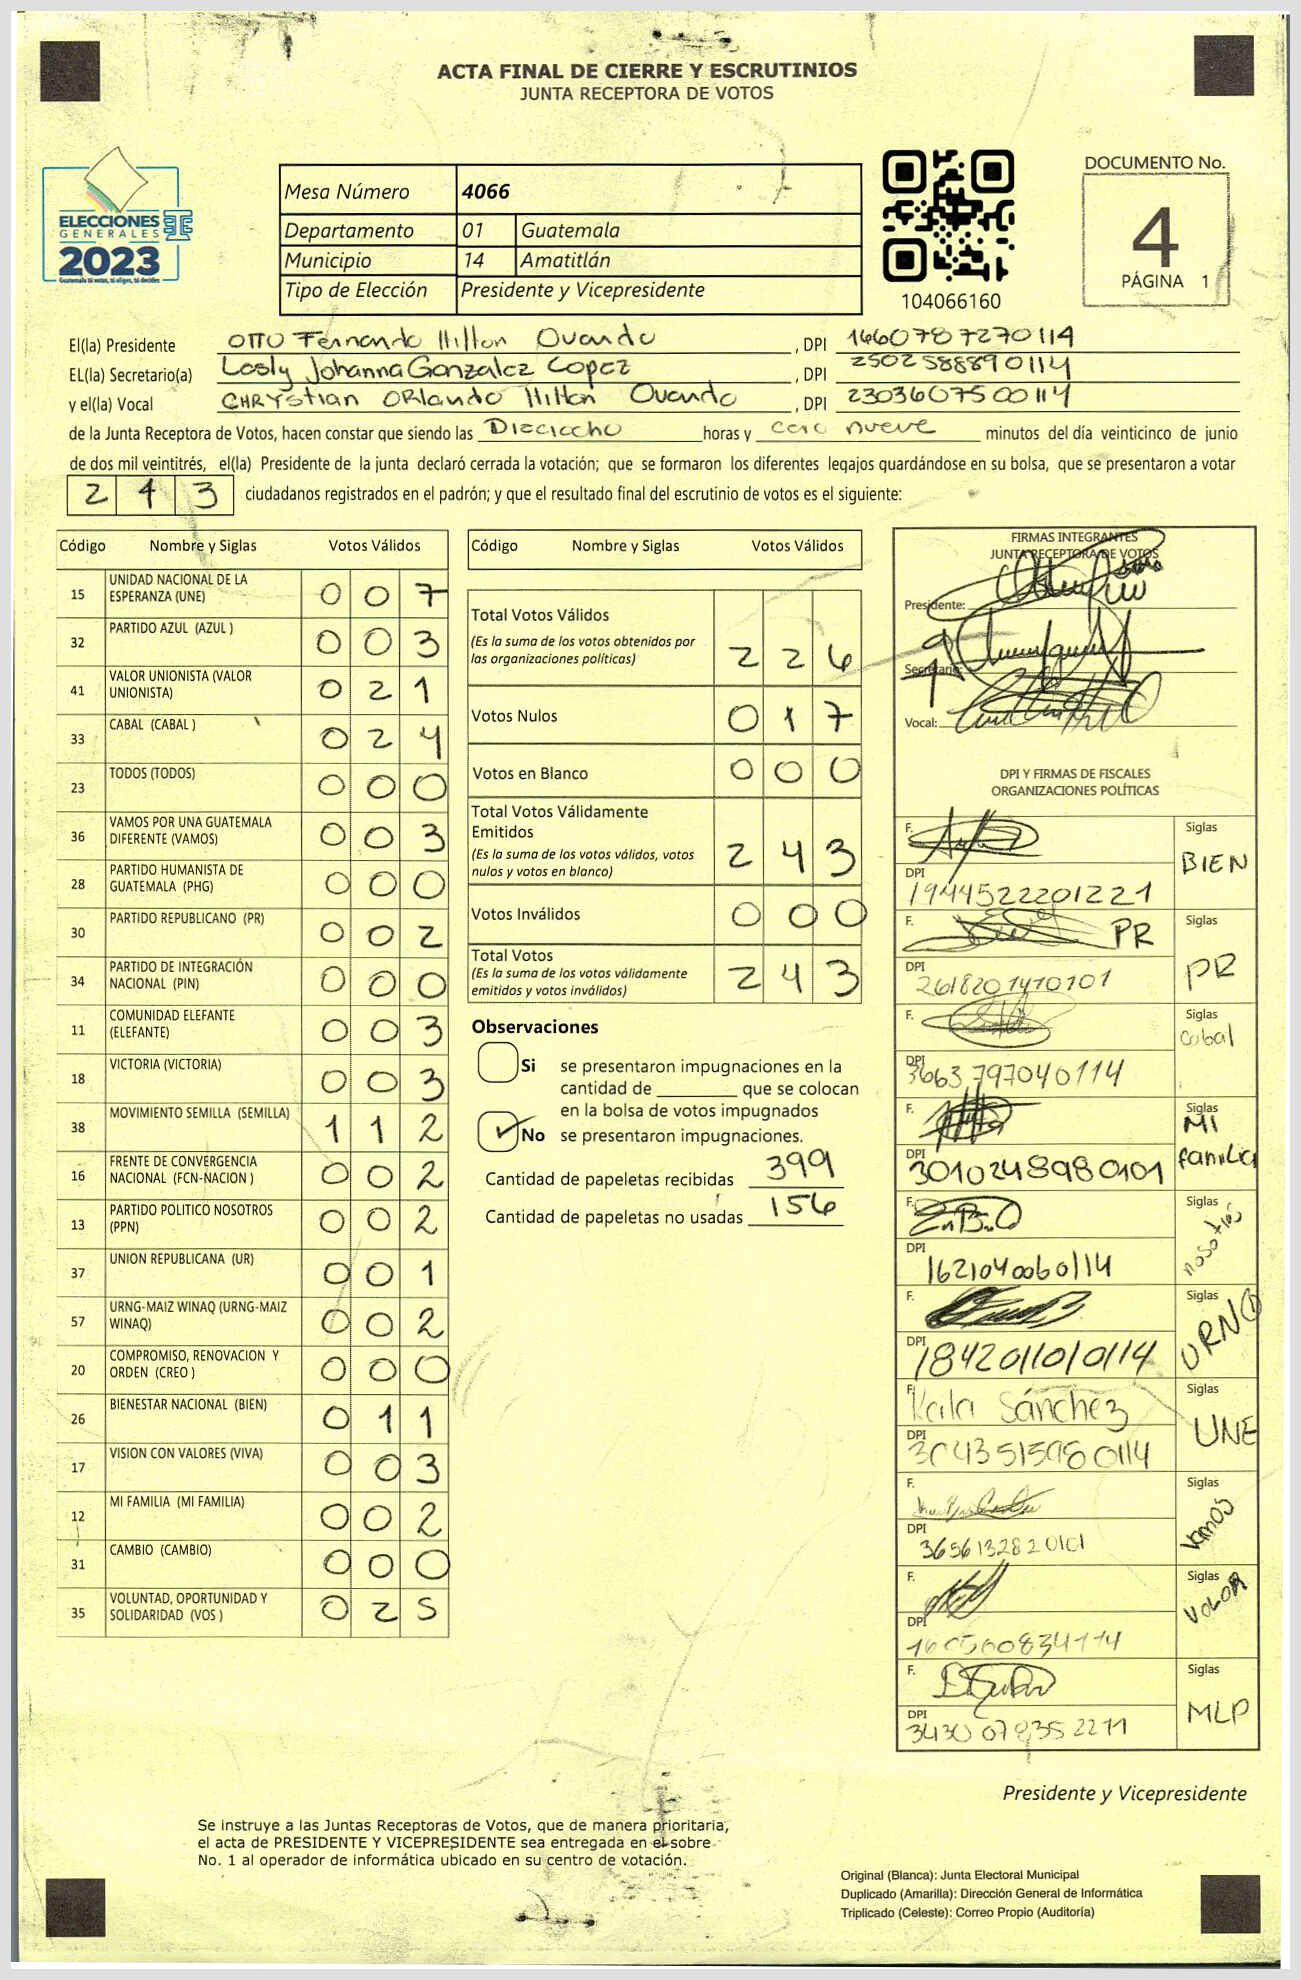 ACTA FINAL DE CIERRE Y ESCRUTINIOS
JUNTA RECEPTORA DE VOTOS
ELECCIONES
GENERALES
2023
Guatemala tú votas, tú eliges, tú decides
Mesa Número 4066
Departamento 01 Guatemala
Municipio 14 Amatitlán
Tipo de Elección Presidente y Vicepresidente
104066160
DOCUMENTO No.
4
PÁGINA 1
El(la) Presidente OTTO Fernando Hilton Ovando , DPI 1660787270114
EL(la) Secretario(a) Lesly Johanna Gonzalez Lopez , DPI 2502588890114
y el(la) Vocal CHRYstian ORlando Hilton Ovando , DPI 2303607500114
de la Junta Receptora de Votos, hacen constar que siendo las Dieciocho horas y cero nueve minutos del día veinticinco de junio
de dos mil veintitrés, el(la) Presidente de la junta declaró cerrada la votación; que se formaron los diferentes legajos guardándose en su bolsa, que se presentaron a votar
243 ciudadanos registrados en el padrón; y que el resultado final del escrutinio de votos es el siguiente:
Código Nombre y Siglas Votos Válidos
15 UNIDAD NACIONAL DE LA ESPERANZA (UNE) 007
32 PARTIDO AZUL (AZUL ) 003
41 VALOR UNIONISTA (VALOR UNIONISTA) 021
33 CABAL (CABAL ) 024
23 TODOS (TODOS) 000
36 VAMOS POR UNA GUATEMALA DIFERENTE (VAMOS) 003
28 PARTIDO HUMANISTA DE GUATEMALA (PHG) 000
30 PARTIDO REPUBLICANO (PR) 002
34 PARTIDO DE INTEGRACIÓN NACIONAL (PIN) 000
11 COMUNIDAD ELEFANTE (ELEFANTE) 003
18 VICTORIA (VICTORIA) 003
38 MOVIMIENTO SEMILLA (SEMILLA) 112
16 FRENTE DE CONVERGENCIA NACIONAL (FCN-NACION ) 002
13 PARTIDO POLITICO NOSOTROS (PPN) 002
37 UNION REPUBLICANA (UR) 001
57 URNG-MAIZ WINAQ (URNG-MAIZ WINAQ) 002
20 COMPROMISO, RENOVACION Y ORDEN (CREO ) 000
26 BIENESTAR NACIONAL (BIEN) 011
17 VISION CON VALORES (VIVA) 003
12 MI FAMILIA (MI FAMILIA) 002
31 CAMBIO (CAMBIO) 000
35 VOLUNTAD, OPORTUNIDAD Y SOLIDARIDAD (VOS ) 025
Código Nombre y Siglas Votos Válidos
Total Votos Válidos 226
(Es la suma de los votos obtenidos por
las organizaciones políticas)
Votos Nulos 017
Votos en Blanco 000
Total Votos Válidamente
Emitidos 243
(Es la suma de los votos válidos, votos
nulos y votos en blanco)
Votos Inválidos 000
Total Votos 243
(Es la suma de los votos válidamente
emitidos y votos inválidos)
Observaciones
Si se presentaron impugnaciones en la
cantidad de ________ que se colocan
en la bolsa de votos impugnados
No se presentaron impugnaciones.
Cantidad de papeletas recibidas 399
Cantidad de papeletas no usadas 156
FIRMAS INTEGRANTES
JUNTA RECEPTORA DE VOTOS
Presidente:
Secretario:
Vocal:
DPI Y FIRMAS DE FISCALES
ORGANIZACIONES POLÍTICAS
F. Siglas BIEN
DPI 1944522201221
F. PR Siglas PR
DPI 2618201410101
F. Siglas cabal
DPI 3663797040114
F. Siglas MI familia
DPI 3010248980101
F. Siglas nosotros
DPI 1621040060114
F. Siglas URNG
DPI 1842011010114
F. Karla Sánchez Siglas UNE
DPI 3043515980114
F. Siglas vamos
DPI 3656132820101
F. Siglas VALOR
DPI
F. Siglas MLP
DPI 3430078352211
Presidente y Vicepresidente
Se instruye a las Juntas Receptoras de Votos, que de manera prioritaria,
el acta de PRESIDENTE Y VICEPRESIDENTE sea entregada en el sobre
No. 1 al operador de informática ubicado en su centro de votación.
Original (Blanca): Junta Electoral Municipal
Duplicado (Amarilla): Dirección General de Informática
Triplicado (Celeste): Correo Propio (Auditoría)